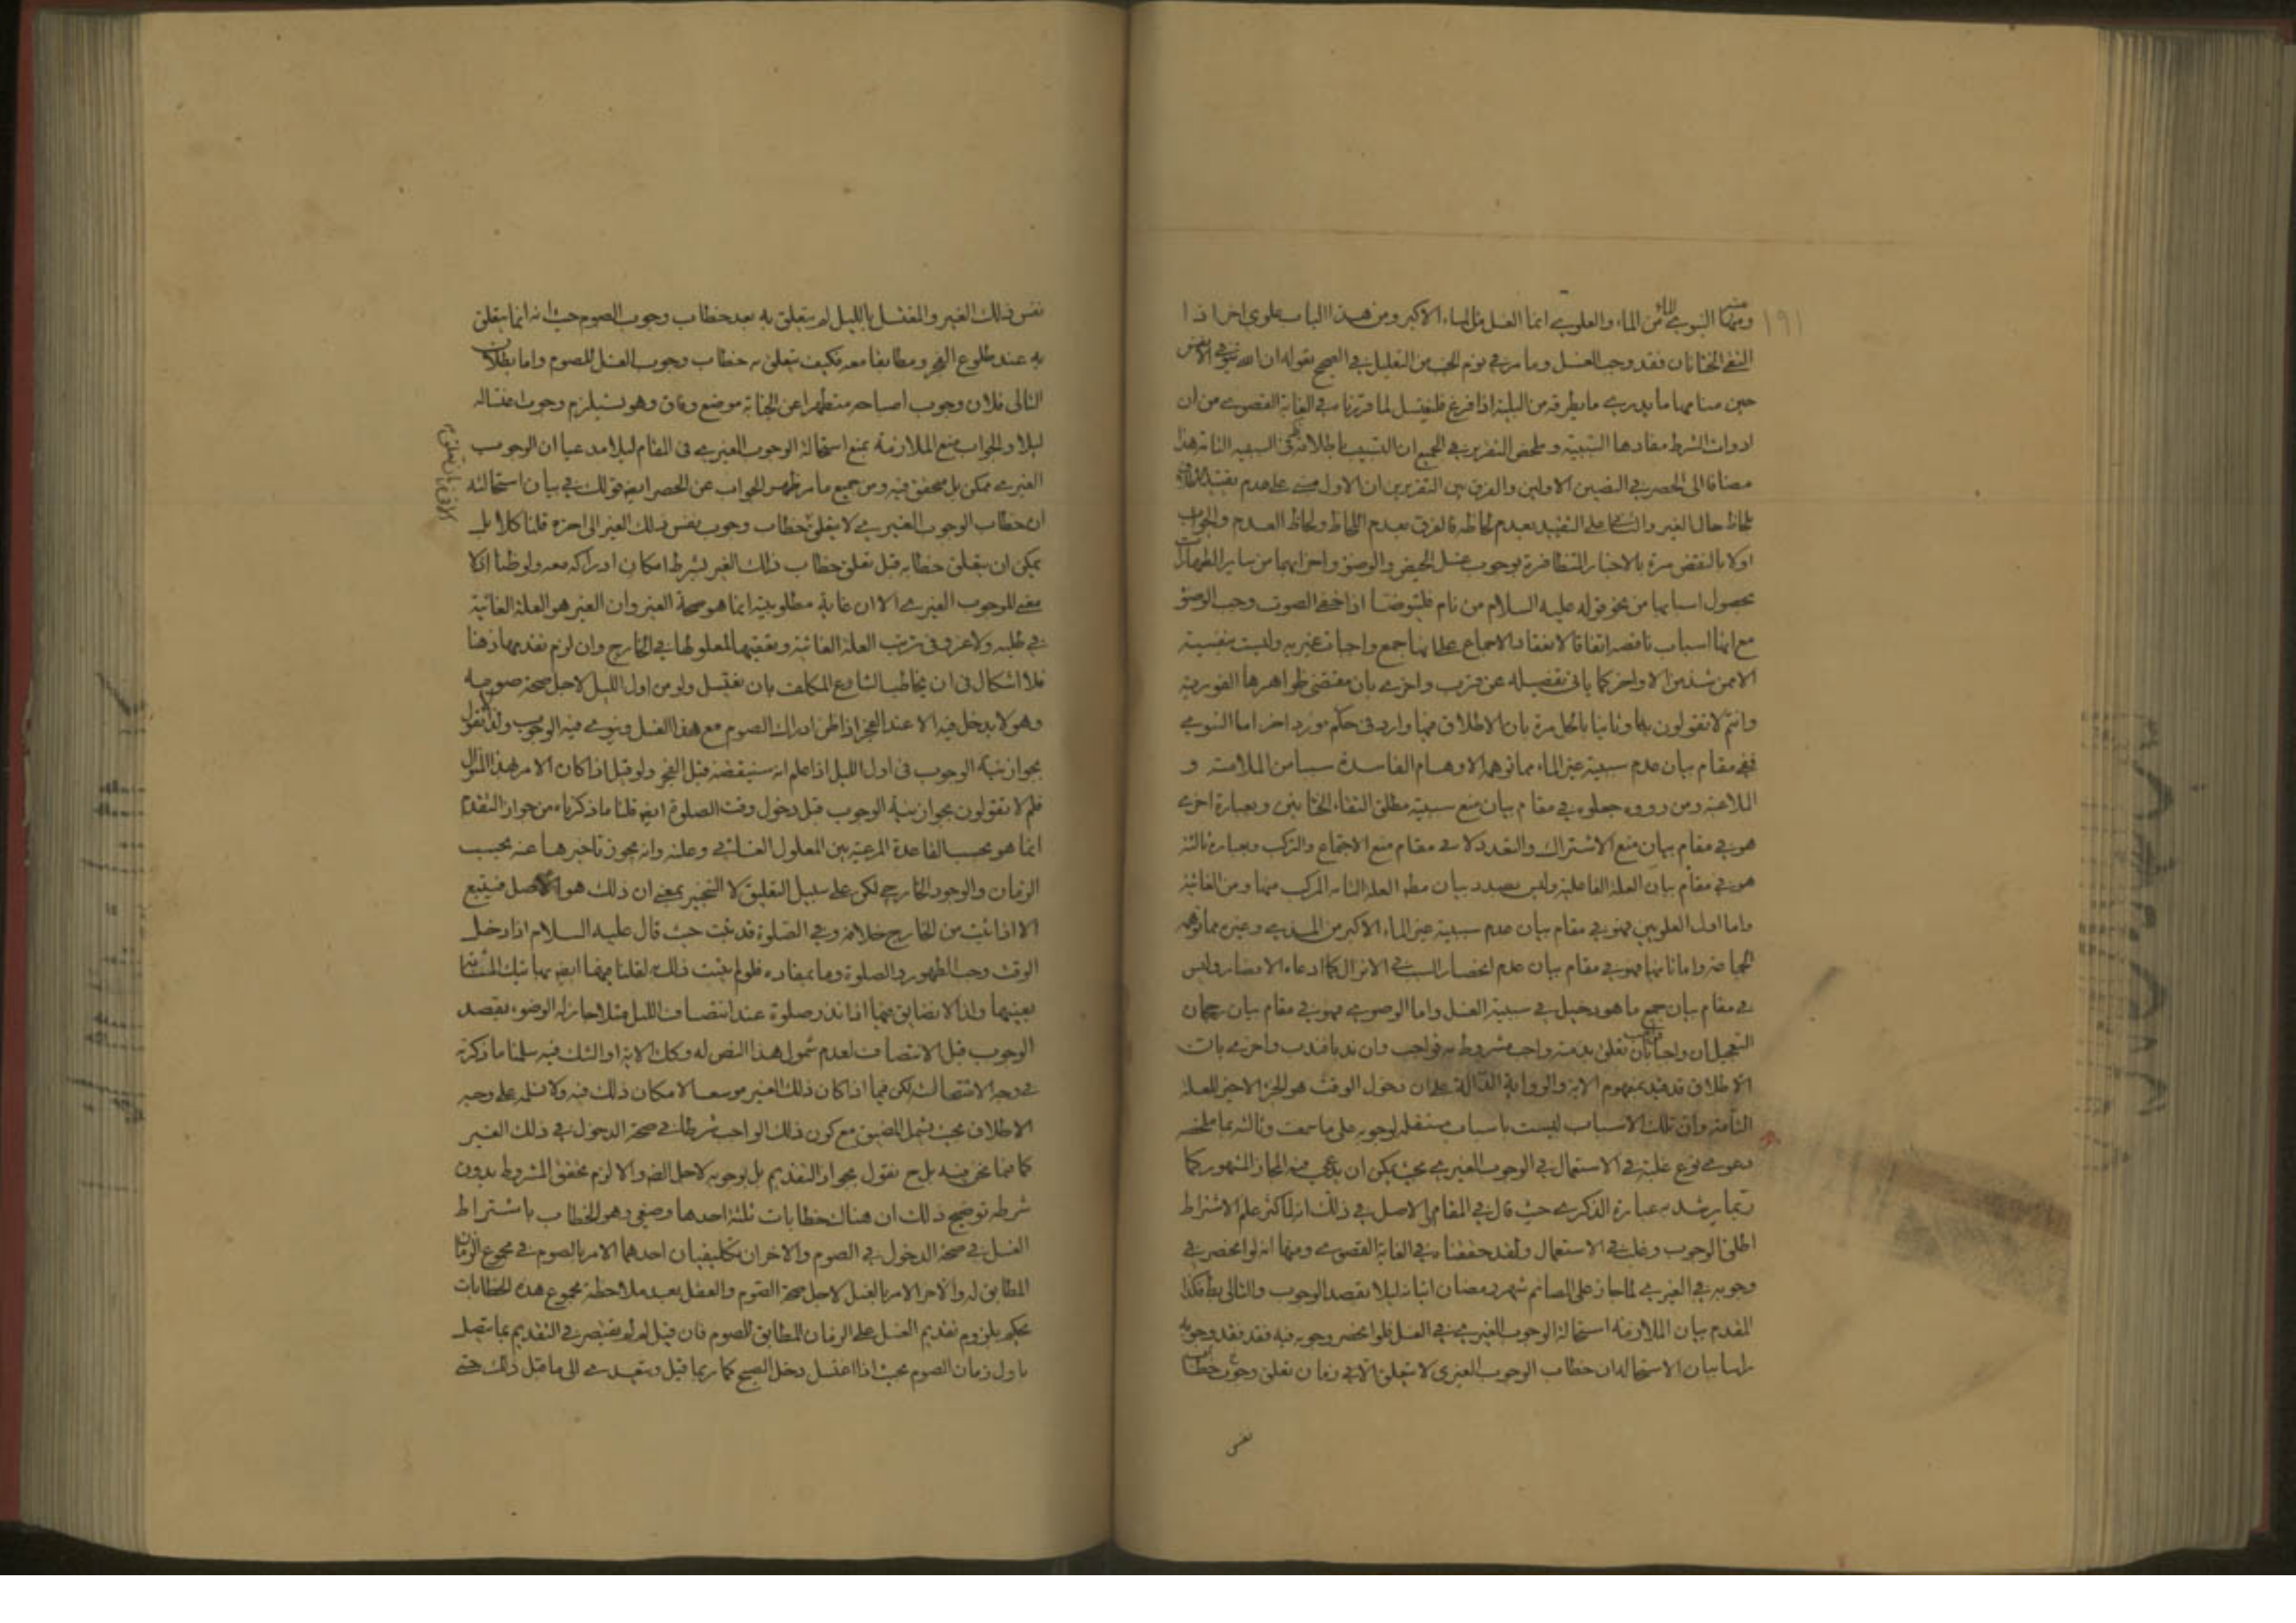 ١٩١
ومنها النبوي الماء من الماء والعلوي انما الغسل من الماء الاكبر ومن هذا الباب علوي اخر اذا
التقى الختانان فقد وجب الغسل وما مر في نوم الجنب من التعليل في الصحيح بقوله ان الله يتوفى الانفس
حين منامها ما يدري ما يطرقه من البلية اذا فرغ فليغتسل لما قررنا في الغاية القصوى من ان
ادوات الشرط مفادها السببية وملخص التقرير في الجميع ان التسبيب باطلاقه في السببية التامة هذا
مضافا الى الحصر في النصين الاولين والفرق بين التقريرين ان الاول مبني على عدم تقييد
بلحاظ حال الغير والثاني على التقييد بعدم لحاظه فالفرق بعدم اللحاظ ولحاظ العدم والجواب
اولا بالنقض مرة بالاخبار المتظافرة بوجوب غسل الحيض والوضوء واخواتهما من ساير الطهارات
بحصول اسبابها من نحو قوله عليه السلام من نام فليتوضا اذا خفي الصوت وجب الوضوء
مع انها اسباب ناقصة اتفاقا لانعقاد الاجماع على انها جمع واجبات غيرية وليست بنفسية
الا من شذ من الاواخر كما ياتي تفصيله عن قريب واخرى بان مقتضى ظواهرها الفورية
وانتم لا تقولون بها وثانيا بالحل مرة بان الاطلاق فيها وارد في حكم مورد اخر اما النبوي
ففي مقام بيان عدم سببية غير الماء مما توهمه الاوهام الفاسدة سببا من الملامسة و
الملاعبة ومن رووه جعلوه في مقام بيان منع سببية مطلق التقاء الختانين وبعبارة اخرى
هو في مقام بيان منع الاشتراك والتعدد لا في مقام منع الاجتماع والتركب وبعبارة ثالثة
هو في مقام بيان العلة الفاعلية وليس بصدد بيان العلة التامة المركب منها ومن الغائية
واما اول العلويين فهو في مقام بيان عدم سببية غير الماء الاكبر من المذي وغيره مما توهمه
الجماعة واما ثانيهما فهو في مقام بيان عدم انحصار السبب في الانزال كما ادعاه الانصار وليس
في مقام بيان جميع ما هو دخيل في سببية الغسل واما الوضوئي فهو في مقام بيان رجحان
التعجيل ان واجبا بان تعلق بذمته واجب مشروط به فواجب وان ندبا فندب واخرى بان
الاطلاق قد قيد بمفهوم الاية والرواية الدالة على ان دخول الوقت هو الجزء الاخير للعلة
التامة وان تلك الاسباب ليست باسباب مستقلة لوجوبه على ما سمعت وثالثة بما ملخصه
دعوى نوع غلبة في الاستعمال في الوجوب الغيري بحيث يمكن ان يدعى فيه المجاز المشهور كما
ربما يرشد به عبارة الذكرى حيث قال في المقام الاصل في ذلك انه لما كثر علم الاشتراط
اطلق الوجوب وغلب في الاستعمال ولقد حققناه في الغاية القصوى ومنها انه لو انحصر في
وجوبه في الغيري لما جاز على الصائم شهر رمضان اتيانه ليلا بقصد الوجوب والتالي بط فكذا
المقدم بيان الملازمة استحالة الوجوب الغيري في الغسل فلو انحصر وجوبه فيه فقد فقد وجوبه
راسا بيان الاستحالة ان خطاب الوجوب الغيري لا يتعلق الا في زمان تعلق وجوب خطاب
نفس
نفس ذلك الغير والمغتسل بالليل لم يتعلق به بعد خطاب وجوب الصوم حيث انه انما يتعلق
به عند طلوع الفجر ومطابقا معه فكيف يتعلق به خطاب وجوب الغسل للصوم واما بطلان
التالي فلان وجوب اصباحه متطهرا عن الجنابة موضع وفاق وهو يستلزم وجوب اغتساله
ليلا والجواب منع الملازمة بمنع استحالة الوجوب الغيري في المقام ليلا مدعيا ان الوجوب
الغيري ممكن بل محقق فيه ومن جميع ما مر ظهر الجواب عن الحصر ايضا قولك في بيان استحالته
ان خطاب الوجوب الغيري لا يتعلق خطاب وجوب نفس ذلك الغير الى اخره قلنا كلا بل
يمكن ان يتعلق خطابه قبل تعلق خطاب ذلك الغير بشرط امكان ادراكه معه ولو ظنا اذ لا
معنى للوجوب الغيري الا ان غاية مطلوبيته انما هو صحة الغير وان الغير هو العلة الغائية
في طلبه ولا غرو في ترتب العلة الغائية وتعقبها لمعلولها في الخارج وان لزم تقديمها ذهنا
فلا اشكال في ان يخاطب الشارع المكلف بان يغتسل ولو من اول الليل لاجل صحة صومه
وهو لا يدخل فيه الا عند الفجر اذا ظن ادراك الصوم مع هذا الغسل وينوي فيه الوجوب ولذا نقول
بجواز نية الوجوب في اول الليل اذا علم انه سينقضه قبل الفجر ولو قيل اذا كان الامر بهذا المنوال
فلم لا تقولون بجواز نية الوجوب قبل دخول وقت الصلوة ايضا قلنا ما ذكرناه من جواز التقدم
انما هو بحسب القاعدة المرعية بين المعلول الغائي وعلته وانه يجوز تاخيرها عنه بحسب
الزمان والوجود الخارجي لكن على سبيل التعليق لا التنجيز بمعنى ان ذلك هو الاصل فيتبع
الا اذا ثبت من الخارج خلافه وفي الصلوة قد ثبت حيث قال عليه السلام اذا دخل
الوقت وجب الطهور والصلوة وما بمفاده فلو لم يثبت ذلك لقلنا فيها ايضا بهاتيك المشابهة
بعينها ولذا لا نضايق فيما اذا نذر صلوة عند انتصاف الليل مثلا جاز له الوضوء بقصد
الوجوب قبل الانتصاف لعدم شمول هذا النص له وكك الاية او الشك فيه سلمنا ما ذكرته
في وجه الاستحالة لكن فيما اذا كان ذلك الغير موسعا لامكان ذلك فيه ولا نسلمه على وجه
الاطلاق بحيث يشمل المضيق مع كون ذلك الواجب شرطا في صحة الدخول في ذلك الغير
كما فيما نحن فيه بل ح نقول بجواز التقديم بل بوجوبه لاجل الضرورة والا لزم تحقق المشروط بدون
شرطه توضيح ذلك ان هناك خطابات ثلثة احدها وضعي وهو الخطاب باشتراط
الغسل في صحة الدخول في الصوم والاخران تكليفيان احدهما الامر بالصوم في مجموع الزمان
المطابق له والاخر الامر بالغسل لاجل صحة الصوم والعقل بعد ملاحظة مجموع هذه الخطابات
يحكم بلزوم تقديم الغسل على الزمان المطابق للصوم فان قيل لم لم يقتصر في التقديم بما يتصل
باول زمان الصوم بحيث اذا اغتسل دخل الصبح كما ربما قيل ويتعدى الى ما قبل ذلك حتى